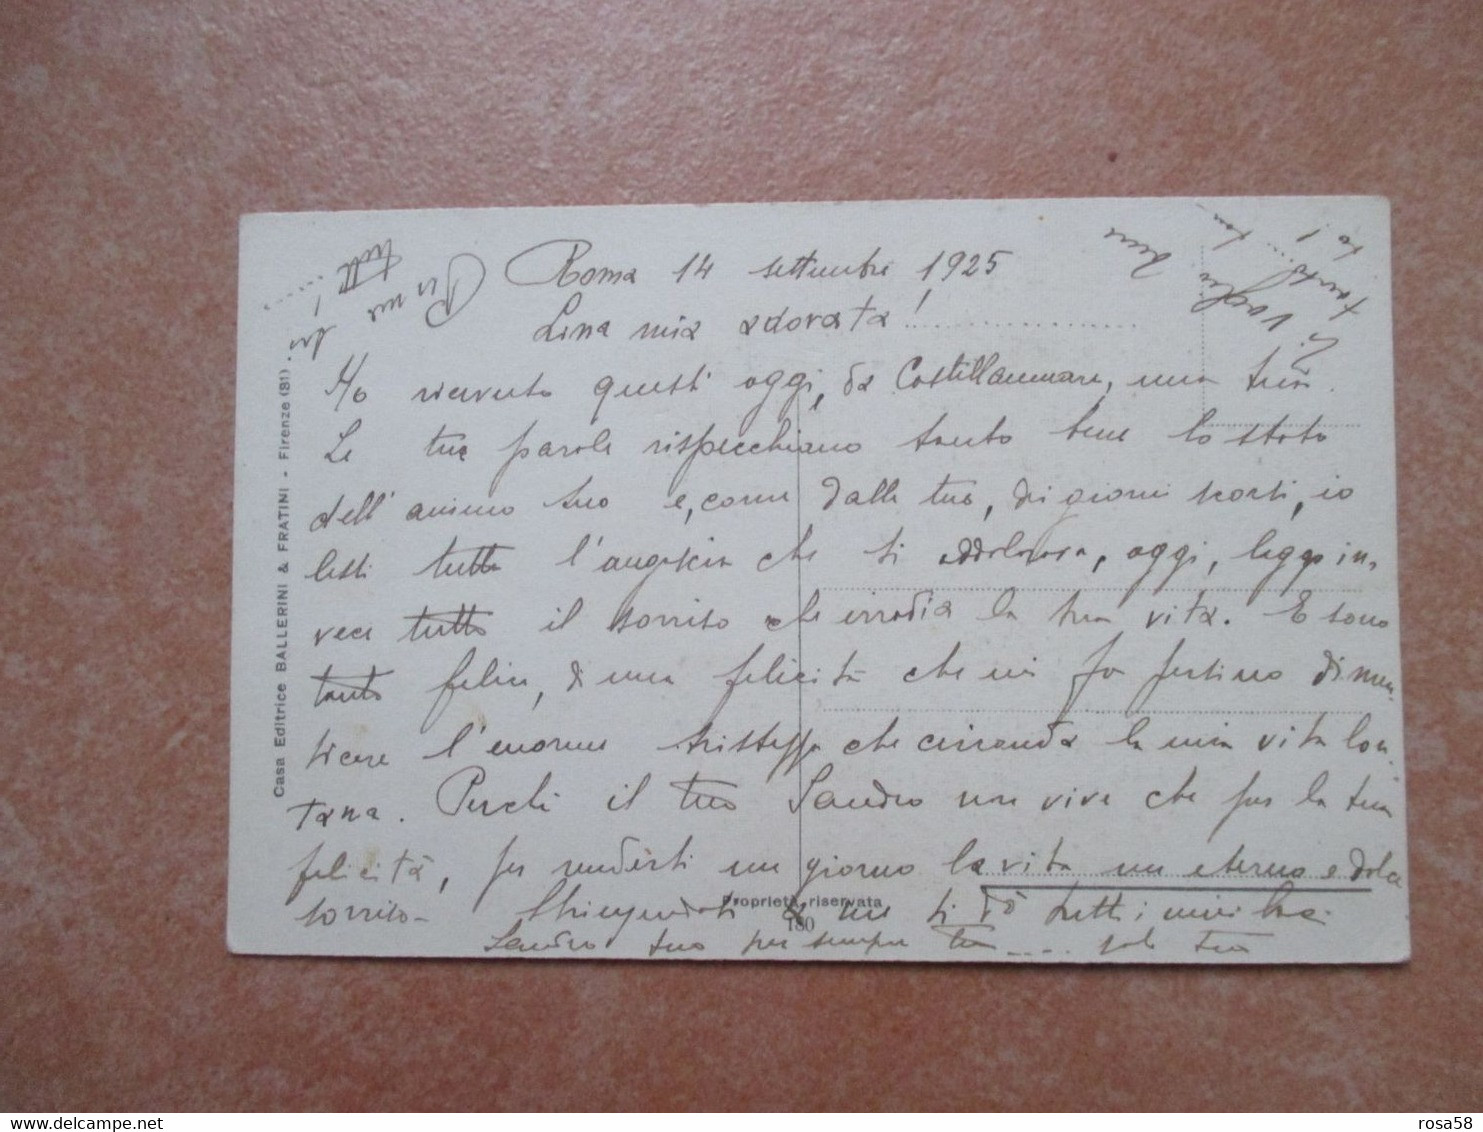 Roma 14 settembre 1925
Lina mia adorata!..............
Ho ricevuto questi oggi, da Castellammare, una tua.
Le tue parole rispecchiano tanto bene lo stato
dell'animo tuo e, come dalle tue, di giorni scorsi, io
lessi tutta l'angoscia che ti addolorava, oggi, leggo in-
vece tutto il sorriso che irradia la tua vita. E sono
tanto felice, di una felicità che mi fa persino dimen-
ticare l'enorme tristezza che circonda la mia vita lon-
tana. Perché il tuo Sandro non vive che per la tua
felicità, per renderti un giorno la vita un eterno e dolce
sorriso - Stringendoti a me ti dò tutti i miei baci
Sandro tuo per sempre tuo .... solo tuo
Ti voglio bene
tanto! ... tan
to!
tutt.......
Casa Editrice BALLERINI & FRATINI - Firenze (81).
Proprietà riservata
180
delcampe.net
rosa58